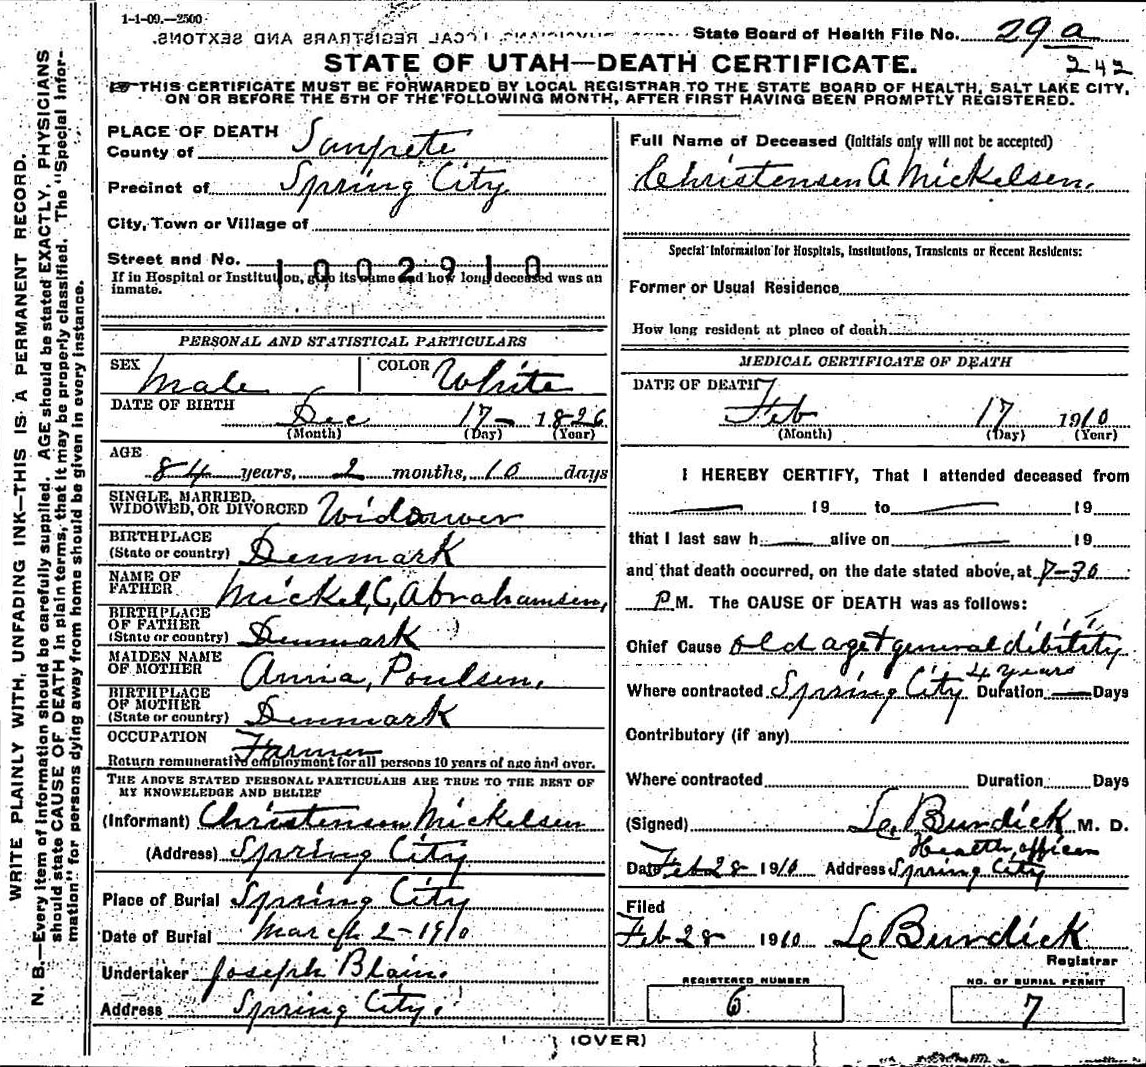 1-1-09.—2500
State Board of Health File No. 29 a
242
STATE OF UTAH—DEATH CERTIFICATE.
THIS CERTIFICATE MUST BE FORWARDED BY LOCAL REGISTRAR TO THE STATE BOARD OF HEALTH, SALT LAKE CITY,
ON OR BEFORE THE 5TH OF THE FOLLOWING MONTH, AFTER FIRST HAVING BEEN PROMPTLY REGISTERED.
WRITE PLAINLY WITH, UNFADING INK—THIS IS A PERMANENT RECORD.
N. B.—Every item of information should be carefully supplied. AGE should be stated EXACTLY. PHYSICIANS
should state CAUSE OF DEATH in plain terms, that it may be properly classified. The "Special Infor-
mation" for persons dying away from home should be given in every instance.
PLACE OF DEATH
County of Sanpete
Precinct of Spring City
City, Town or Village of
Street and No. 1002910
If in Hospital or Institution, give its name and how long deceased was an
inmate.
PERSONAL AND STATISTICAL PARTICULARS
SEX Male COLOR White
DATE OF BIRTH Dec 17- 1826
(Month) (Day) (Year)
AGE
84 years, 2 months, 10 days
SINGLE, MARRIED,
WIDOWED, OR DIVORCED Widower
BIRTHPLACE
(State or country) Denmark
NAME OF
FATHER Mickel, C, Abrahamsen,
BIRTHPLACE
OF FATHER
(State or country) Denmark
MAIDEN NAME
OF MOTHER Annia, Poulsen,
BIRTHPLACE
OF MOTHER
(State or country) Denmark
OCCUPATION Farmer
Return remunerative employment for all persons 10 years of age and over.
THE ABOVE STATED PERSONAL PARTICULARS ARE TRUE TO THE BEST OF
MY KNOWLEDGE AND BELIEF
(Informant) Christensen Mickelsen
(Address) Spring City
Place of Burial Spring City
Date of Burial March 2-1910
Undertaker Joseph Blain.
Address Spring City.
Full Name of Deceased (initials only will not be accepted)
Christensen A Mickelsen.
Special Information for Hospitals, Institutions, Transients or Recent Residents:
Former or Usual Residence
How long resident at place of death
MEDICAL CERTIFICATE OF DEATH
DATE OF DEATH
Feb 17 1910
(Month) (Day) (Year)
I HEREBY CERTIFY, That I attended deceased from
19 to 19
that I last saw h alive on 19
and that death occurred, on the date stated above, at 7-30
P M. The CAUSE OF DEATH was as follows:
Chief Cause old age + general dibitity
4 years
Where contracted Spring City Duration — Days
Contributory (if any)
Where contracted Duration Days
(Signed) Le, Burdick M. D.
Health officer
Date Feb 28 1910 Address Spring City
Filed
Feb 28 1910 Le Burdick
Registrar
REGISTERED NUMBER
6
NO. OF BURIAL PERMIT
7
(OVER)